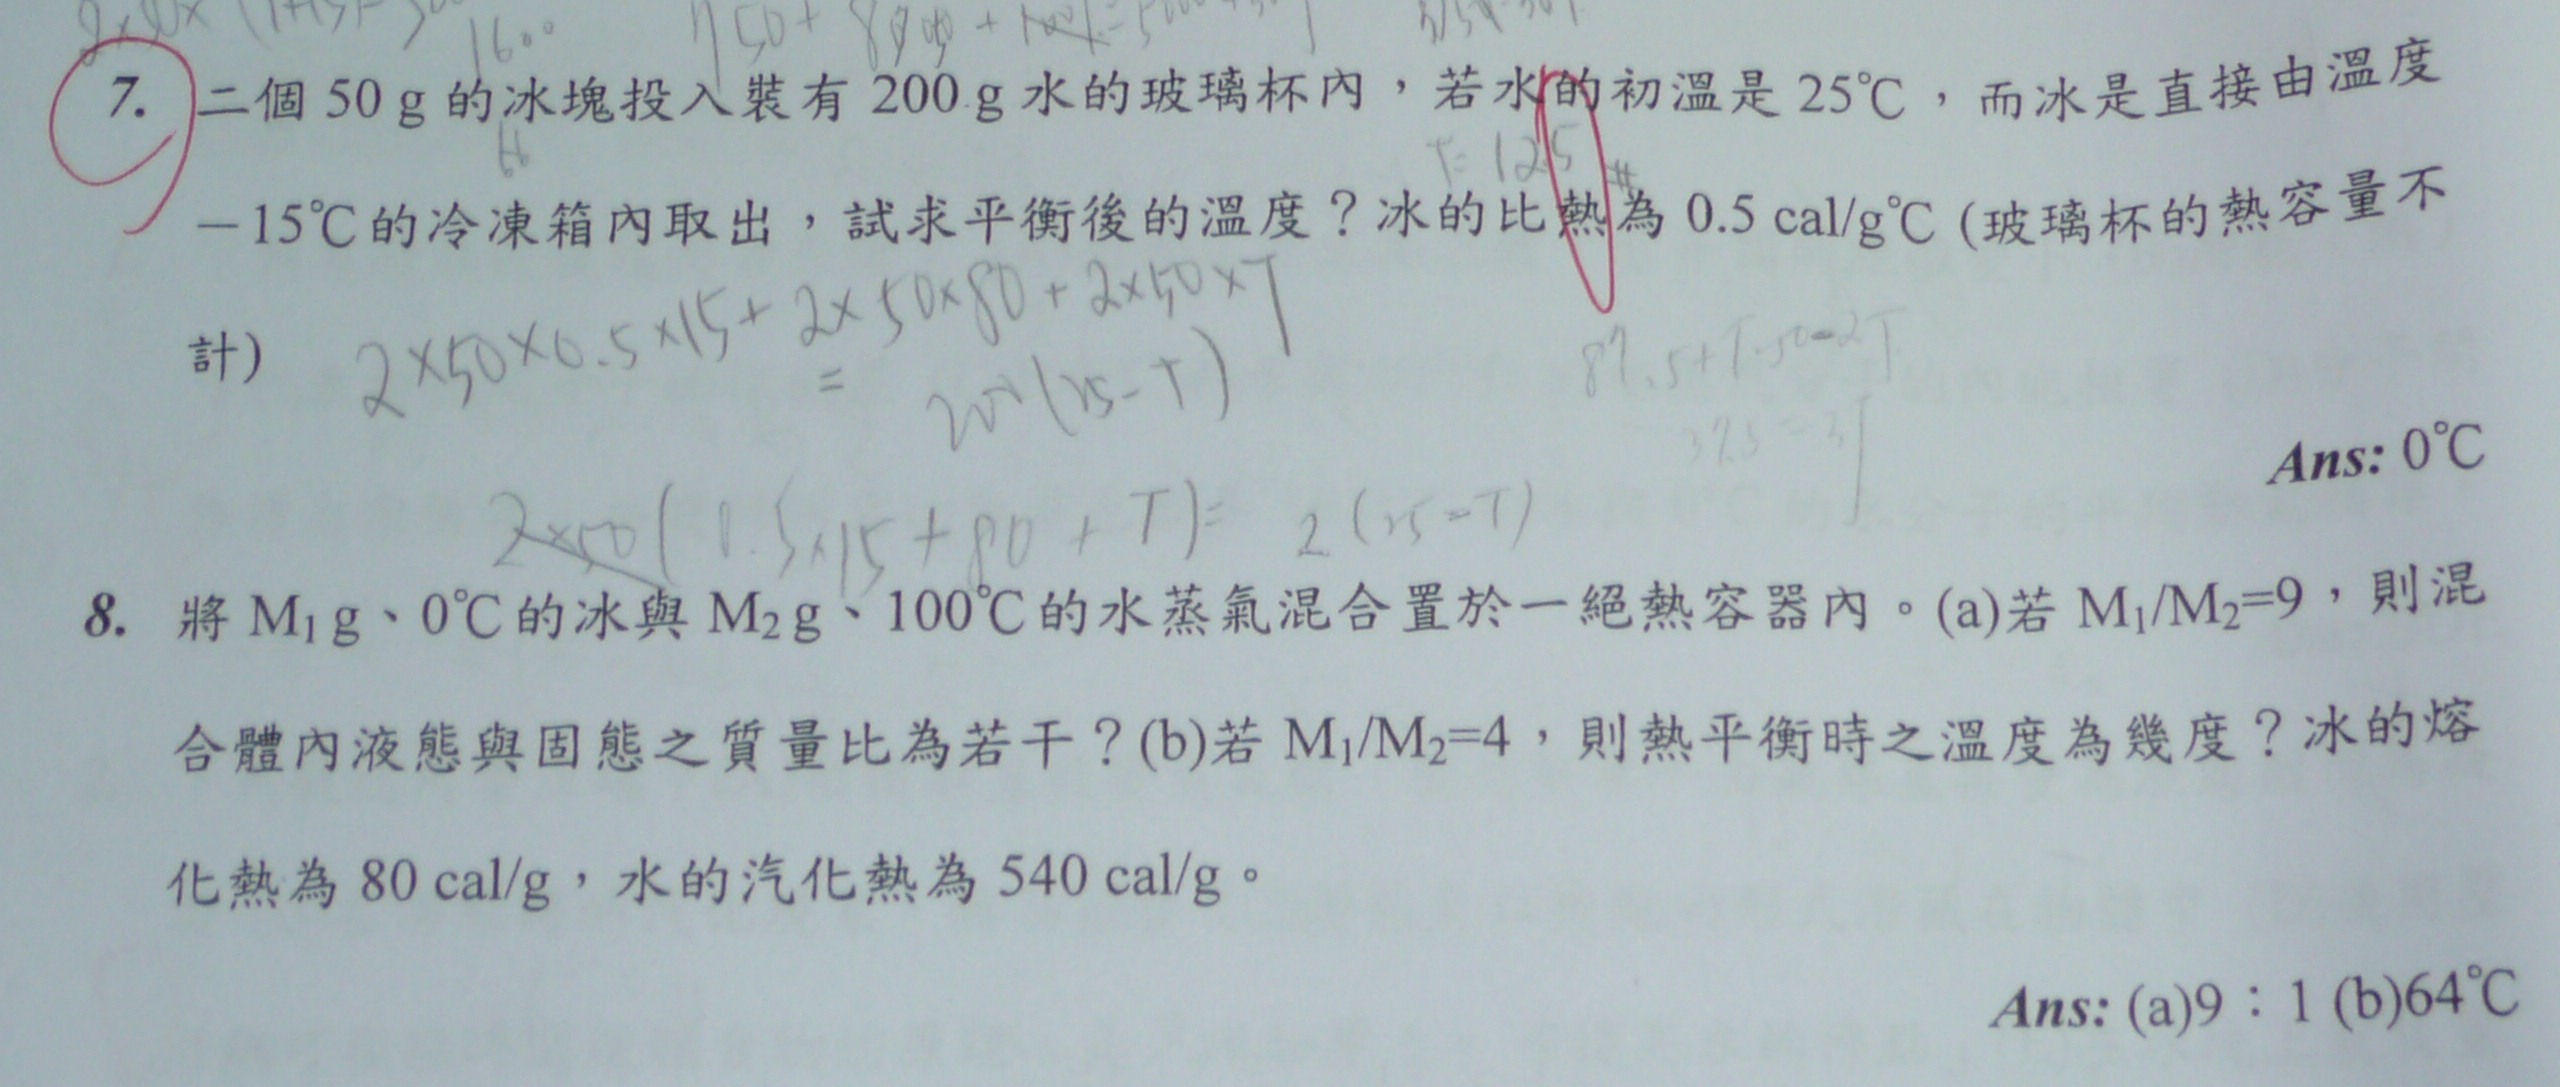 1600
7. 二個 50 g 的冰塊投入裝有 200 g 水的玻璃杯內，若水的初溫是 25℃，而冰是直接由溫度
T= 12.5 #
－15℃的冷凍箱內取出，試求平衡後的溫度？冰的比熱為 0.5 cal/g℃ (玻璃杯的熱容量不
計)
2×50×0.5×15+2×50×80+2×50×T
= 200(25-T)
87.5+T=50-2T
Ans: 0℃
2×50(0.5×15+80+T)= 2(25-T)
8. 將 M₁ g、0℃的冰與 M₂ g、100℃的水蒸氣混合置於一絕熱容器內。(a)若 M₁/M₂=9，則混
合體內液態與固態之質量比為若干？(b)若 M₁/M₂=4，則熱平衡時之溫度為幾度？冰的熔
化熱為 80 cal/g，水的汽化熱為 540 cal/g。
Ans: (a)9：1 (b)64℃